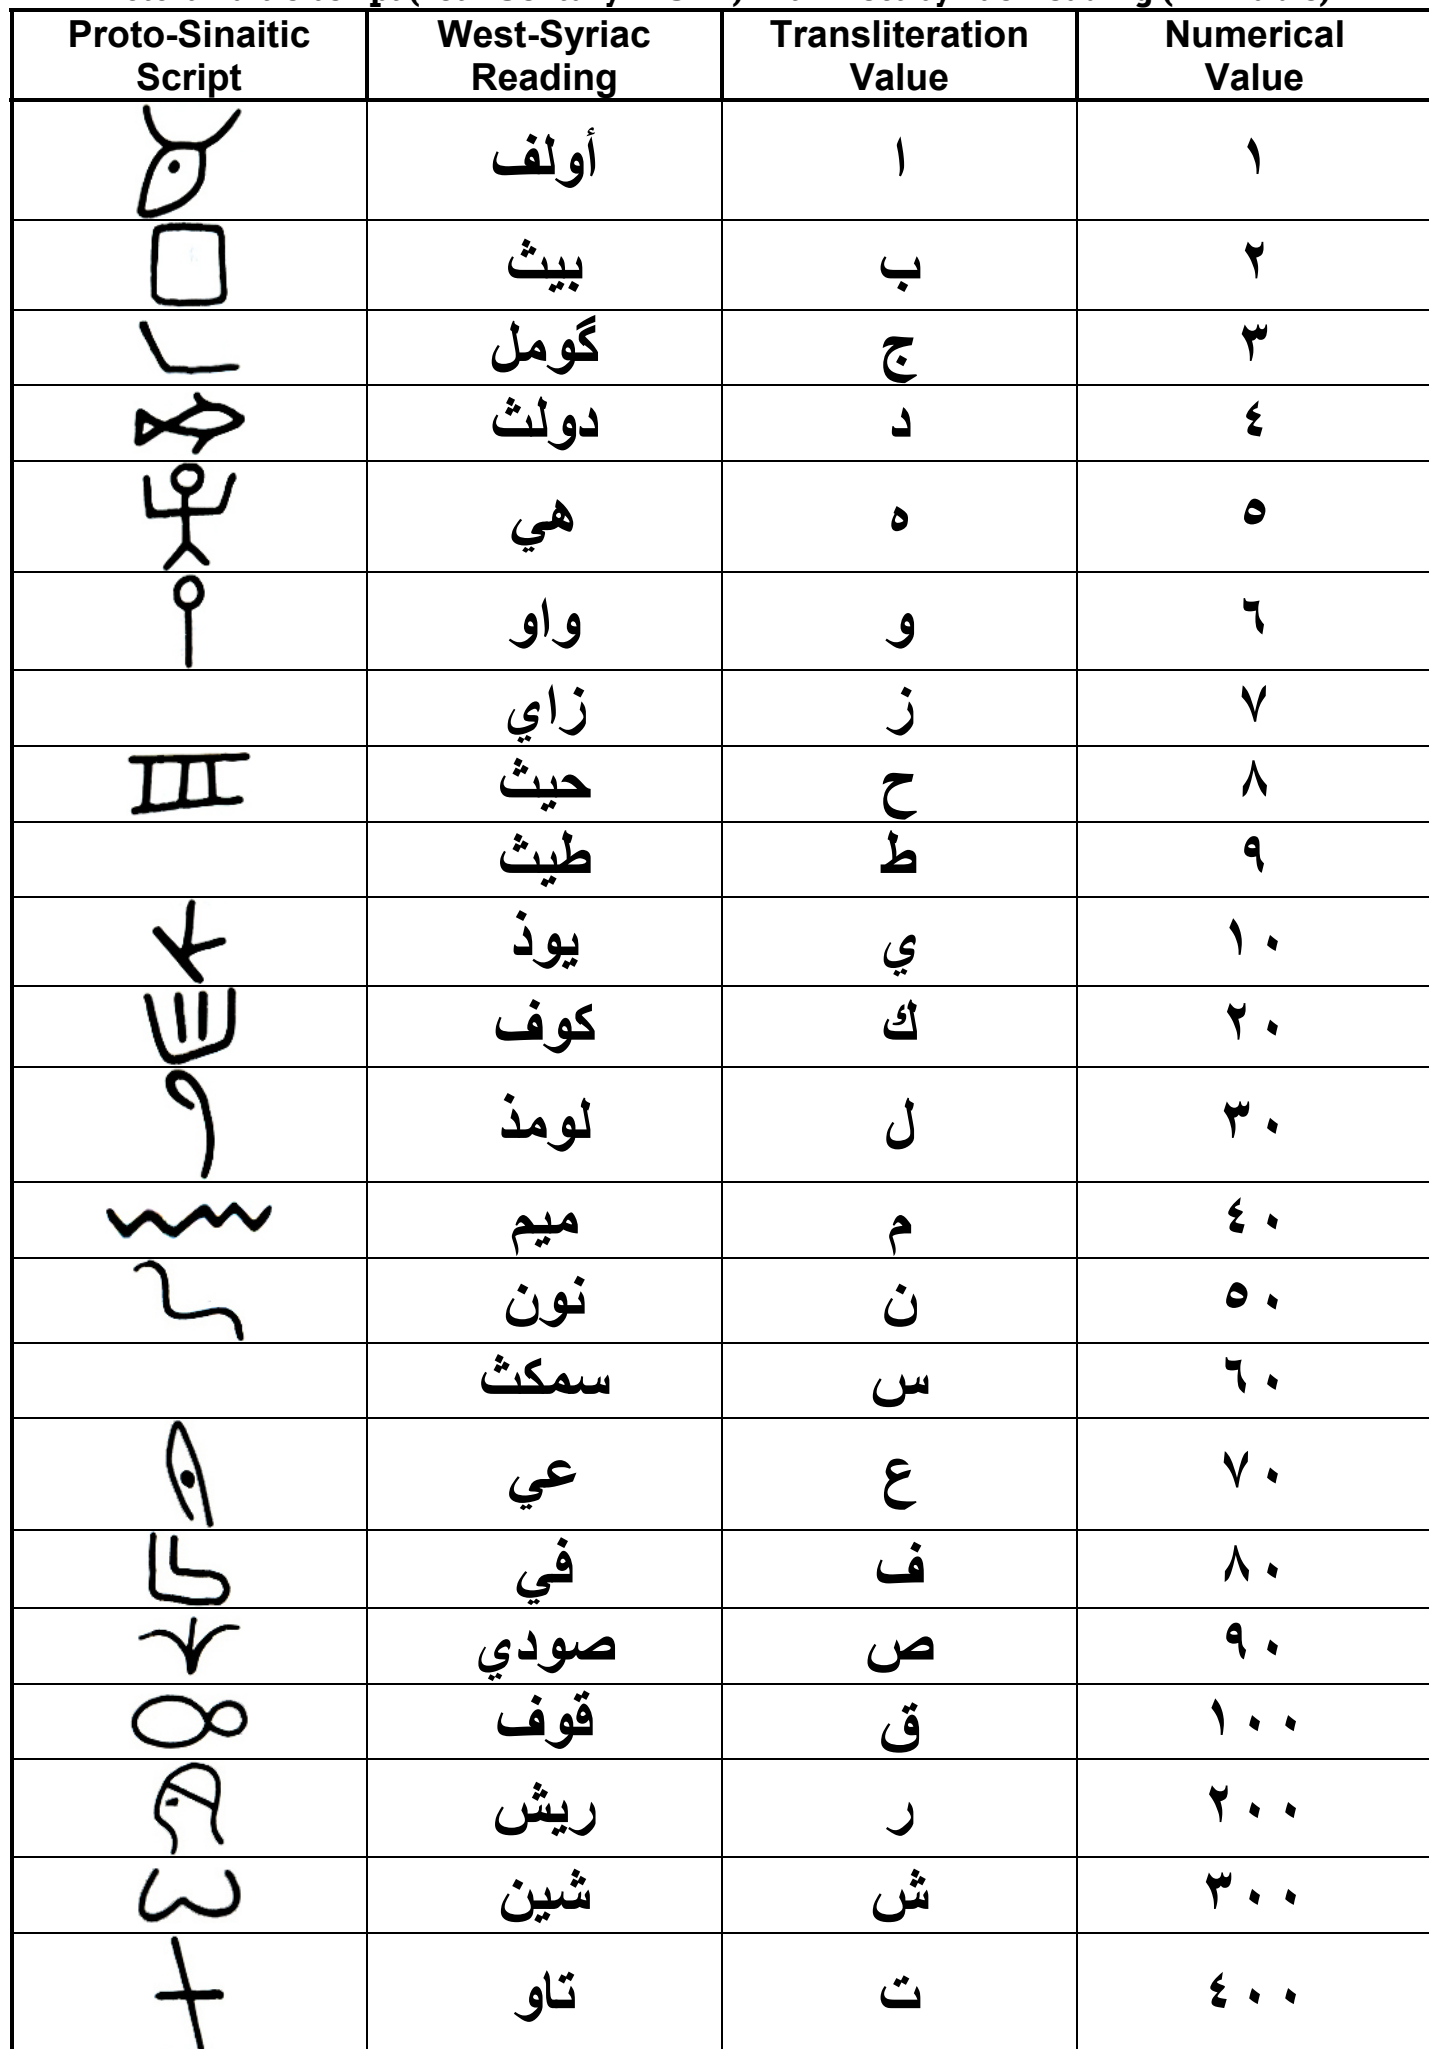 Proto-Sinaitic Script	West-Syriac Reading	Transliteration Value	Numerical Value
أولف	ا	١
بيث	ب	٢
گومل	ج	٣
دولث	د	٤
هي	ه	٥
واو	و	٦
زاي	ز	٧
حيث	ح	٨
طيث	ط	٩
يوذ	ي	١٠
كوف	ك	٢٠
لومذ	ل	٣٠
ميم	م	٤٠
نون	ن	٥٠
سمكث	س	٦٠
عي	ع	٧٠
في	ف	٨٠
صودي	ص	٩٠
قوف	ق	١٠٠
ريش	ر	٢٠٠
شين	ش	٣٠٠
تاو	ت	٤٠٠